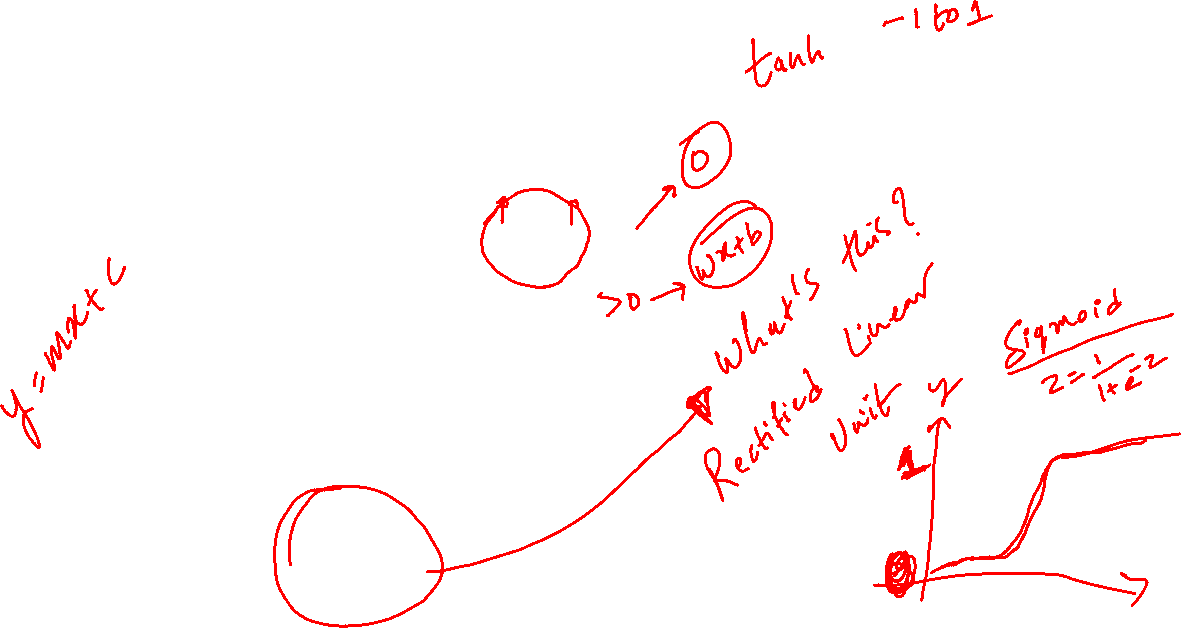 -1 to 1
tanh
0
wx+b
>0
What's this?
Rectified Linear
Unit
y = mx + c
Sigmoid
z = 1/1+e^-z
y
1